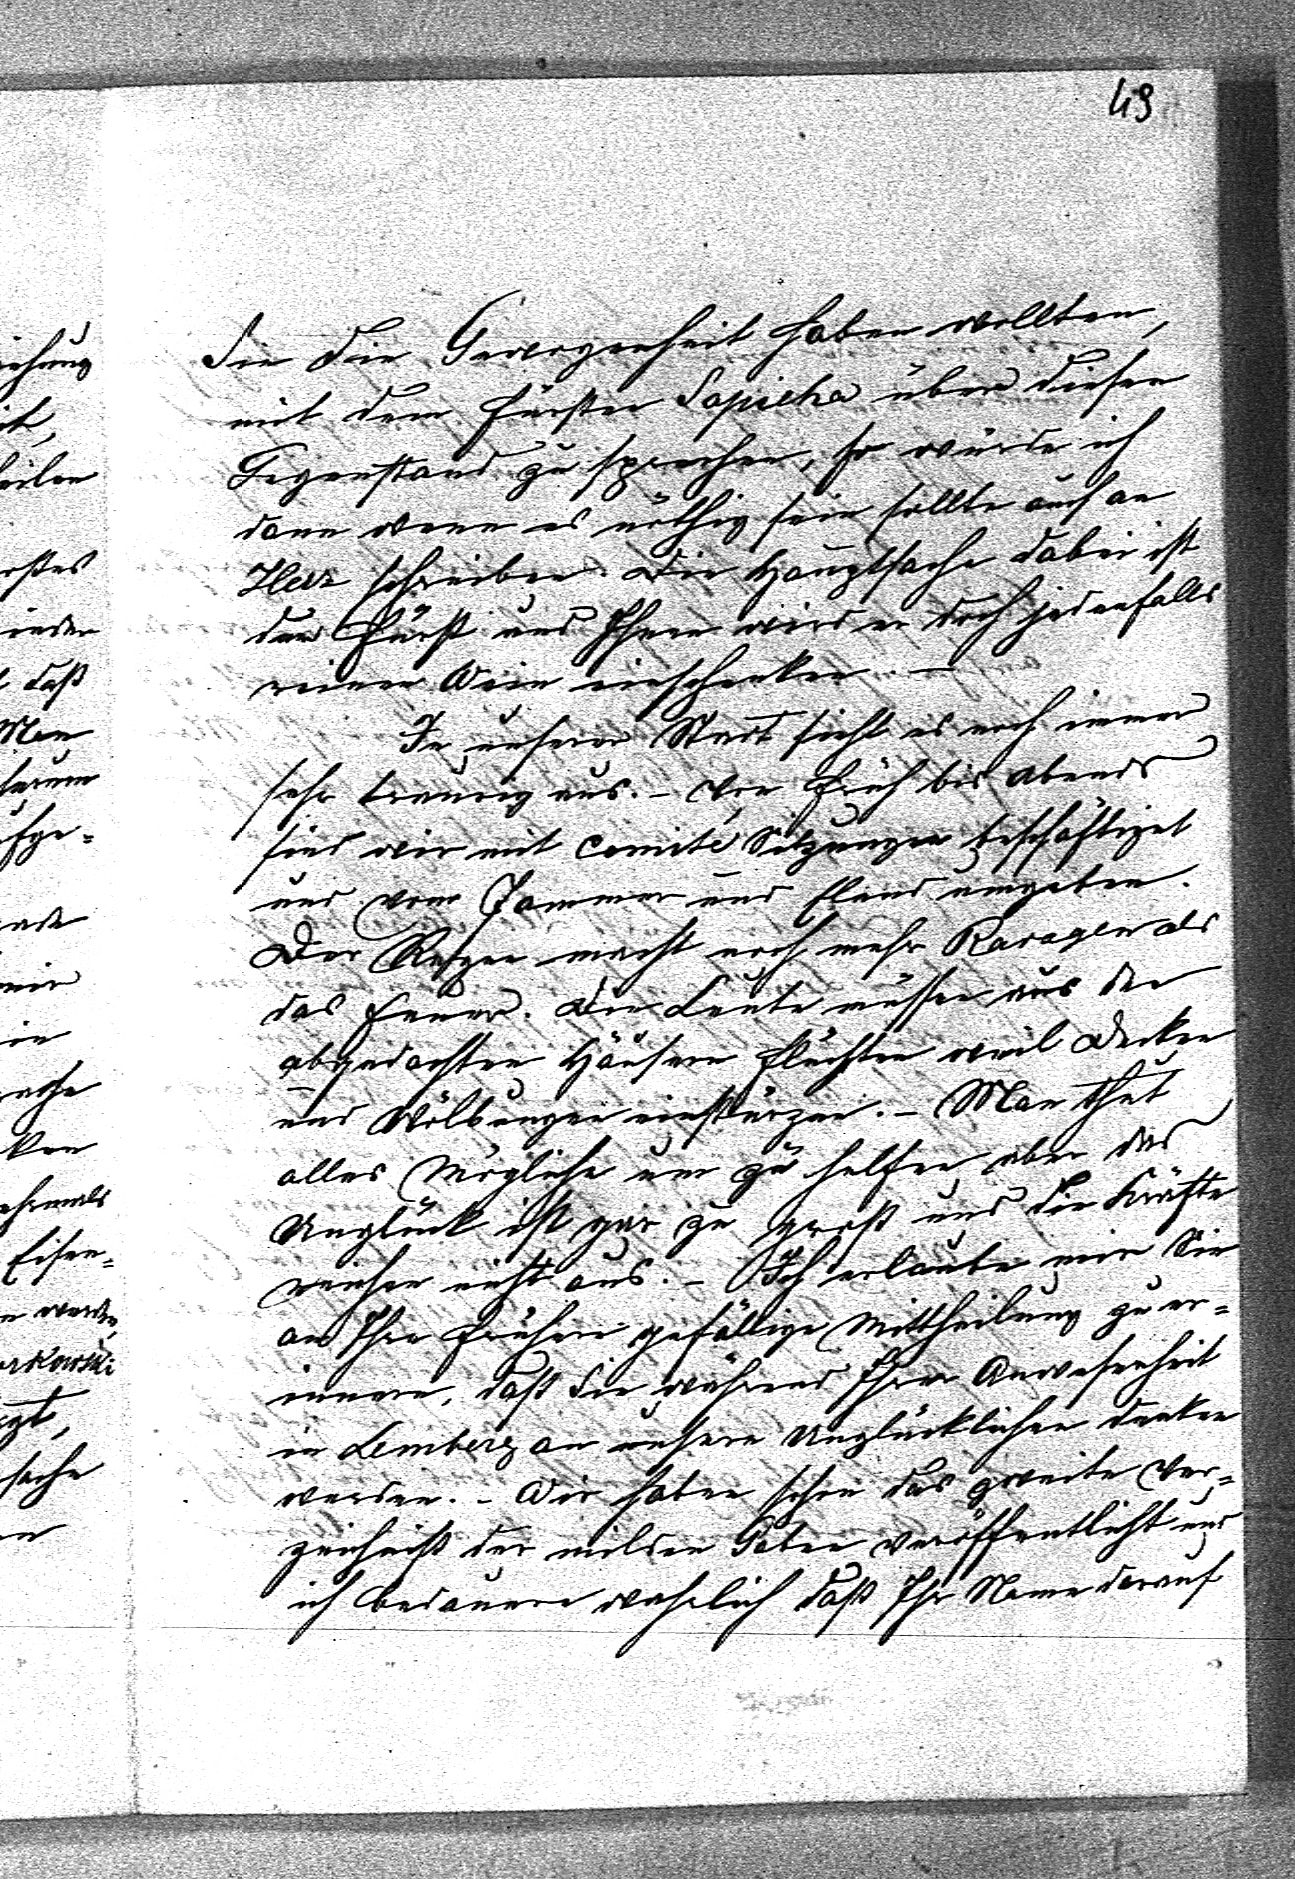 49
Sie die Gewogenheit haben wollten,
mit dem Fürsten Sapieha über diesen
Gegenstand zu sprechen, so würde ich
dann wenn es nöthig sein sollte auch an
Herz schreiben. Die Hauptsache dabei ist
der Fürst und Ihnen wird er doch jedenfalls
reinen Wein einschenken. —
In unserer Stadt sieht es noch immer
sehr traurig aus. – Von Früh bis Abends
sind wir mit Comité Sitzungen beschäftiget
und vom Jammer und Elend umgeben.
Der Regen macht noch mehr Ravagen als
das Feuer. Die Leute müssen aus den
abgedachten Häusern flüchten weil Decken
und Wölbungen einstürzen. – Man thut
alles Mögliche um zu helfen aber das
Unglück ist gar zu groß und die Kräfte
reichen nicht aus. – Ich erlaube mir Sie
an Ihre frühere gefällige Mittheilung zu er=
innern, daß Sie während Ihrer Anwesenheit
in Lemberg an unsere Unglücklichen denken
werden. – Wir haben schon das zweite Ver=
zeichniß der milden Gaben veröffentlicht und
ich bedauere wahrlich daß Ihr Name darauf